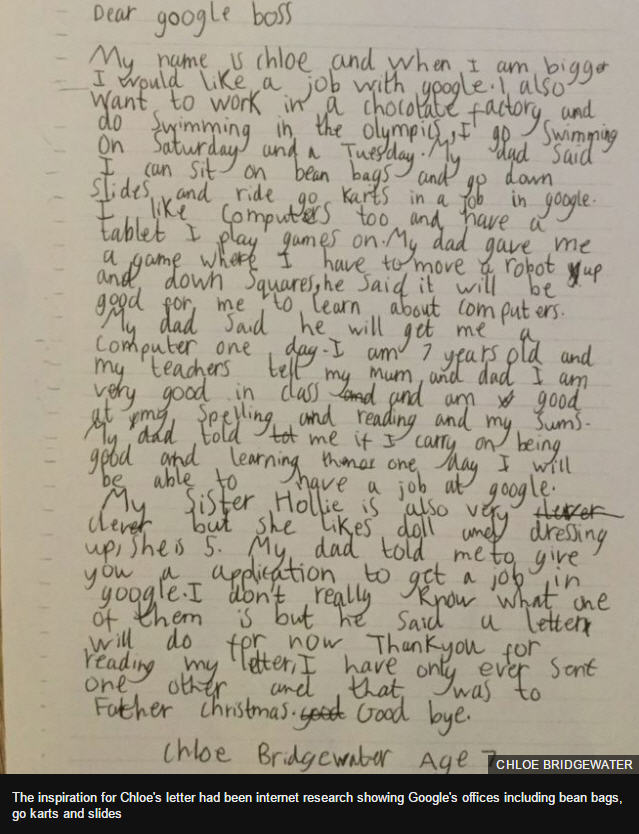 Dear google boss
My name is chloe and when I am bigger
I would like a job with google. I also
want to work in a chocolate factory and
do swimming in the olympics, I go swimming
on Saturday and a Tuesday. My dad said
I can sit on bean bags and go down
slides and ride go karts in a job in google.
I like computers too and have a
tablet I play games on. My dad gave me
a game where I have to move a robot up
and down squares, he said it will be
good for me to learn about computers.
My dad said he will get me a
computer one day. I am 7 years old and
my teachers tell my mum and dad I am
very good in class and and am good
at my spelling and reading and my sums.
My dad told tot me if I carry on being
good and learning one day I will
be able to have a job at google.
My sister Hollie is also very clever
clever but she likes doll and dressing
up, she is 5. My dad told me to give
you a application to get a job in
google. I don't really know what one
of them is but he said a letter
will do for now Thankyou for
reading my letter, I have only ever sent
one other and that was to
Father christmas. good Good bye.
Chloe Bridgewater Age 7
CHLOE BRIDGEWATER
The inspiration for Chloe's letter had been internet research showing Google's offices including bean bags,
go karts and slides